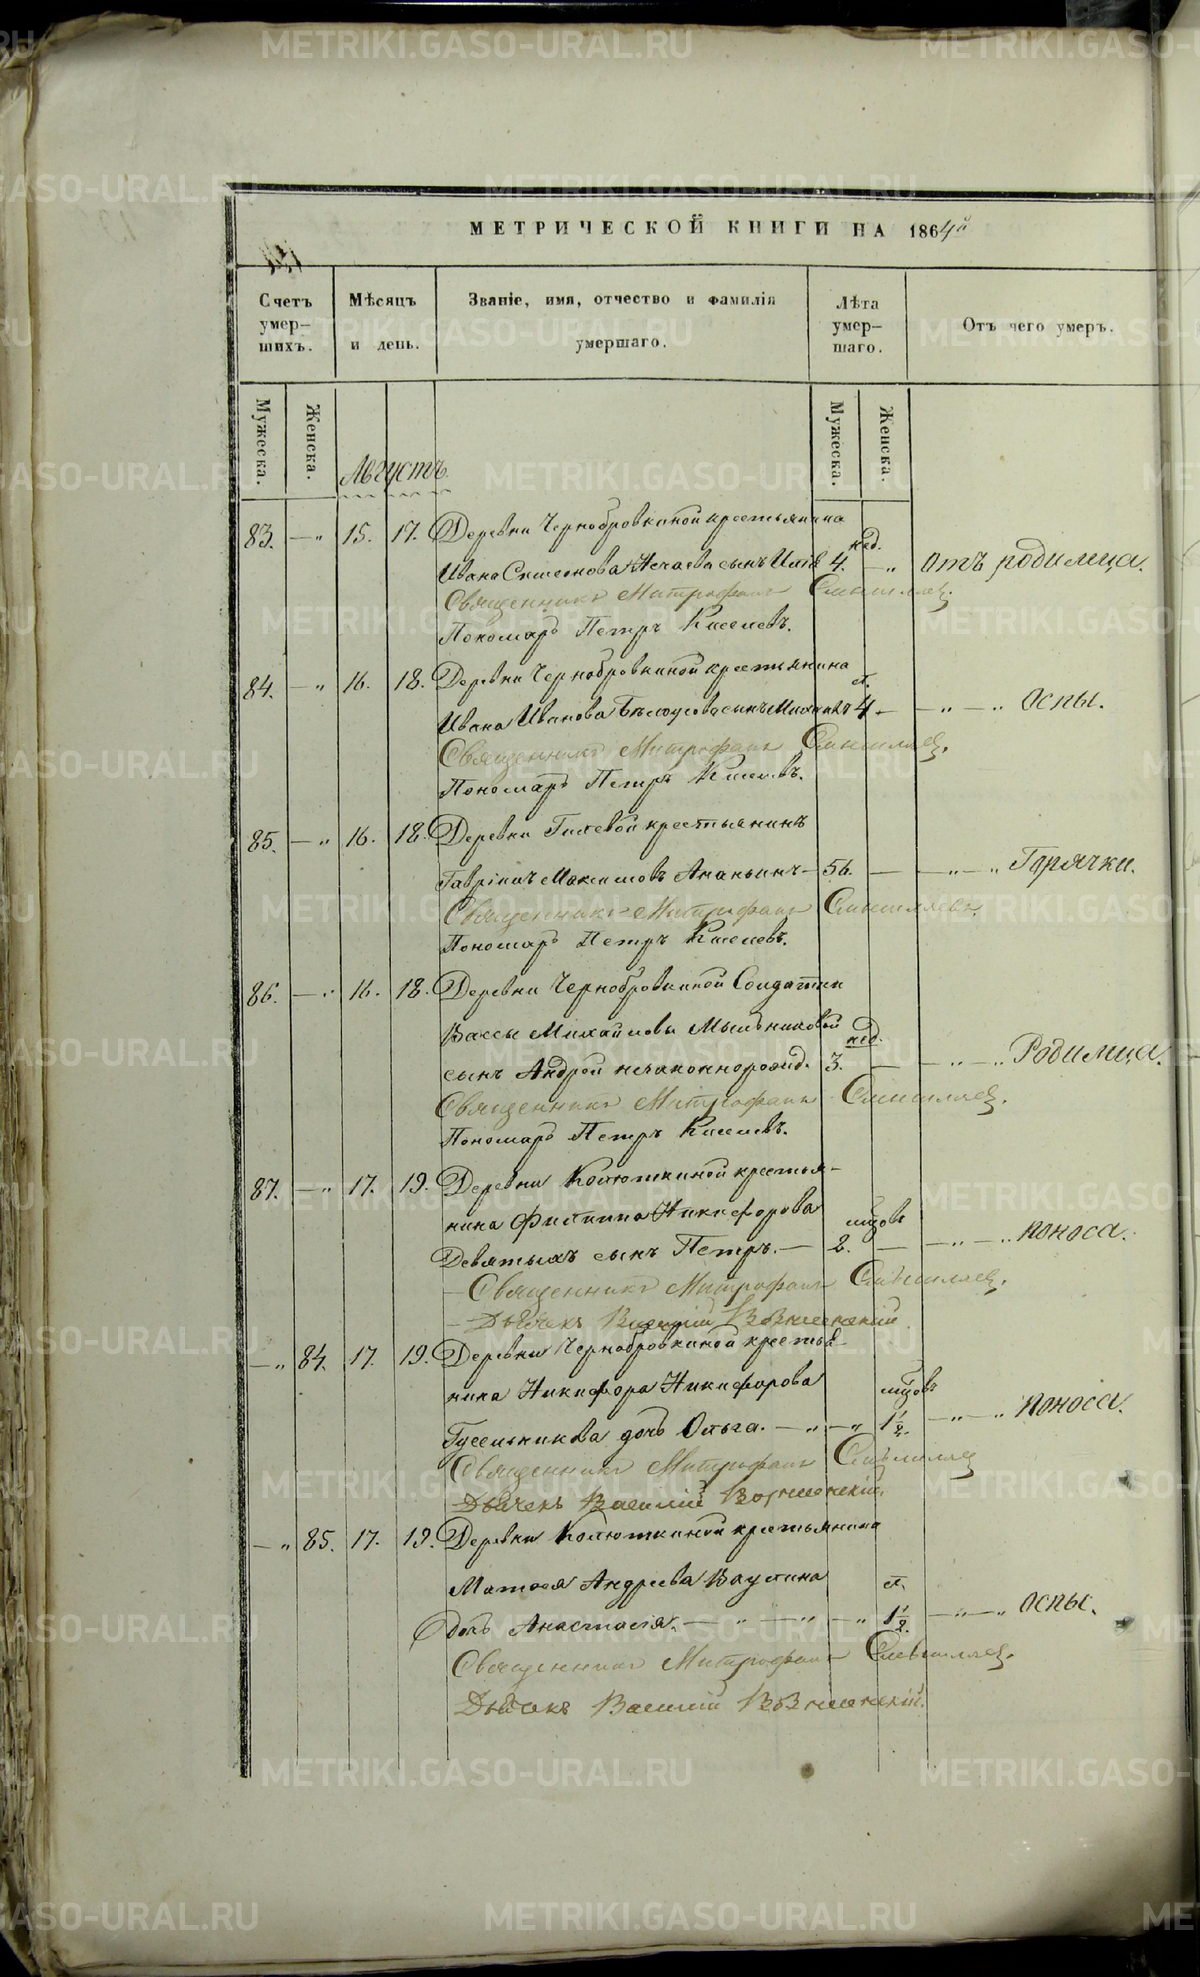 МЕТРИЧЕСКОЙ КНИГИ НА 1864й
Счетъ умер-шихъ.
Мѣсяцъ и день.
Званіе, имя, отчество и фамилія умершаго.
Лѣта умер-шаго.
Отъ чего умеръ.
Мужеска. Женска. Мужеска. Женска.
Августъ
83. — „ 15. 17. Деревни Чернобровкиной крестьянина
Ивана Симеонова Нечаева сынъ 4. нед. — „ Отъ родимца.
Священникъ Митрофанъ
Пономарь Петръ Киселевъ.
84. — „ 16. 18. Деревни Чернобровкиной крестьянина
Ивана Иванова Бѣлоусова сынъ Михаилъ 4 л. — „ — „ Оспы.
Священникъ Митрофанъ
Пономарь Петръ Киселевъ.
85. — „ 16. 18. Деревни Гилевой крестьянинъ
Гавріилъ Максимовъ Ананьинъ — 56. — — „ — „ Горячки.
Священникъ Митрофанъ
Пономарь Петръ Киселевъ.
86. — „ 16. 18. Деревни Чернобровкиной Солдатки
Вассы Михайловы Мыльниковой
сынъ Андрей незаконнорожд. 3. нед. — — „ — „ Родимца.
Священникъ Митрофанъ
Пономарь Петръ Киселевъ.
87. — „ 17. 19. Деревни Колюткиной крестья-
нина Филиппа Никифорова
Девятыхъ сынъ Петръ. — 2. мцовъ — — „ — „ поноса.
— Священникъ Митрофанъ
— Дьячекъ Василій Вознесенскій
— „ 84. 17. 19. Деревни Чернобровкиной крестья-
нина Никифора Никифорова
Гусельникова дочь Ольга. — „ — „ 1½. мцовъ — „ — „ поноса.
Священникъ Митрофанъ
Дьячекъ Василій Вознесенскій.
— „ 85. 17. 19. Деревни Колюткиной крестьянина
Матвея Андреева Ваулина
дочь Анастасія. — „ — „ — „ 1½. л. — „ — „ оспы.
Священникъ Митрофанъ
Дьячекъ Василій Вознесенскій.
METRIKI.GASO-URAL.RU